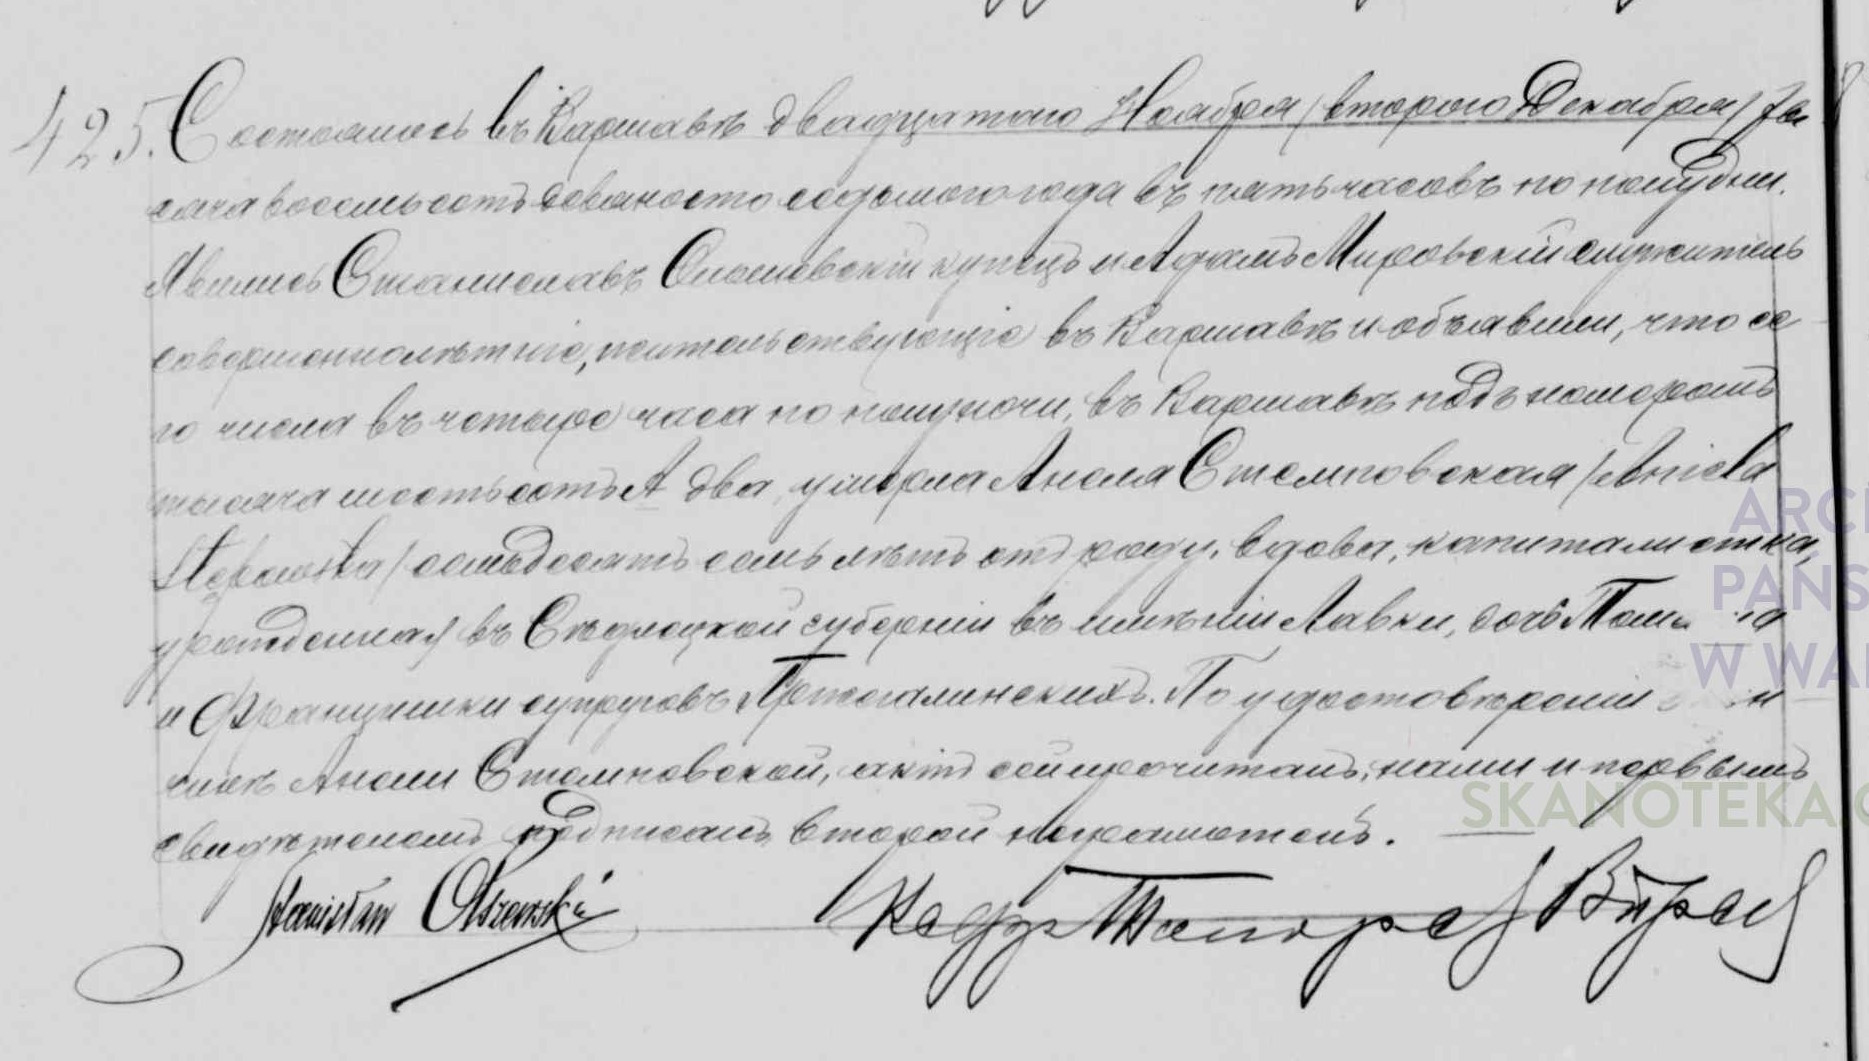 425. Состоялось въ Варшавѣ двадцатаго Ноября /второго Декабря/ ты
сяча восемьсотъ девяносто седьмого года въ пять часовъ по полудни.
Явились Станиславъ Ольшевскій купецъ и Адамъ Мировскій служитель
совершеннолѣтніе, жительствующіе въ Варшавѣ и объявили, что се
го числа въ четыре часа по полуночи, въ Варшавѣ подъ номеромъ
тысяча шестьсотъ А два, умерла Анеля Стемповская /Aniela
Stępowska/ семьдесятъ семь лѣтъ отъ роду, вдова, капиталистка,
урожденная въ Сѣдлецкой губерніи въ имѣніи Лавки, дочь
и Францишки супруговъ. По удостовѣреніи
чинѣ Анели Стемповской, актъ сей прочитанъ, нами и первымъ
свидѣтелемъ подписанъ второй неграмотенъ.
Stanisław Olszewski
ARC
PAŃS
W WA
SKANOTEKA.G